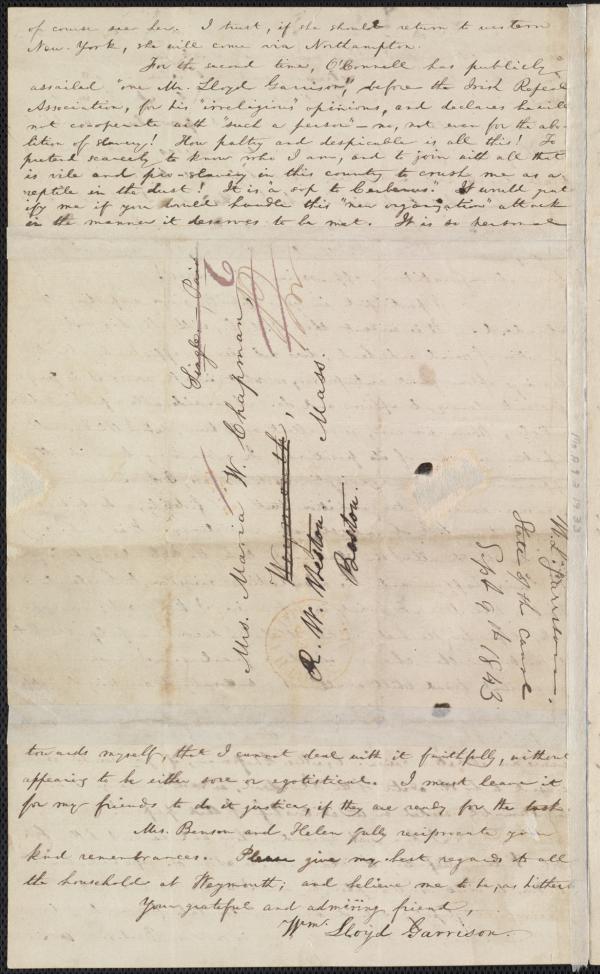 of course see her. I trust, if she should return to western
New-York, she will come via Northampton.
For the second time, O'Connell has publicly
assailed "one Mr. Lloyd Garrison," before the Irish Repeal
Association, for his "irreligious" opinions, and declares he will
not co-operate with "such a person" — no, not even for the abo-
lition of slavery! How paltry and despicable is all this! To
pretend scarcely to know who I am, and to join with all that
is vile and pro-slavery in this country to crush me as a
reptile in the dust! It is "a sop to Cerberus." It would grat-
ify me if you would handle this "new organization" attack
in the manner it deserves to be met. It is so personal
Single — Paid
6
Mrs. Maria W. Chapman,
Weymouth,
Mass.
R. W. Weston
Boston.
W. L. Garrison.
State of the Cause
Sept 9th 1843
towards myself, that I cannot deal with it faithfully, without
appearing to be either sore or egotistical. I must leave it
for my friends to do it justice, if they are ready for the task.
Mrs. Benson and Helen fully reciprocate your
kind remembrances. Please give my best regards to all
the household at Weymouth; and believe me to be, as hitherto
Your grateful and admiring friend,
Wm. Lloyd Garrison.